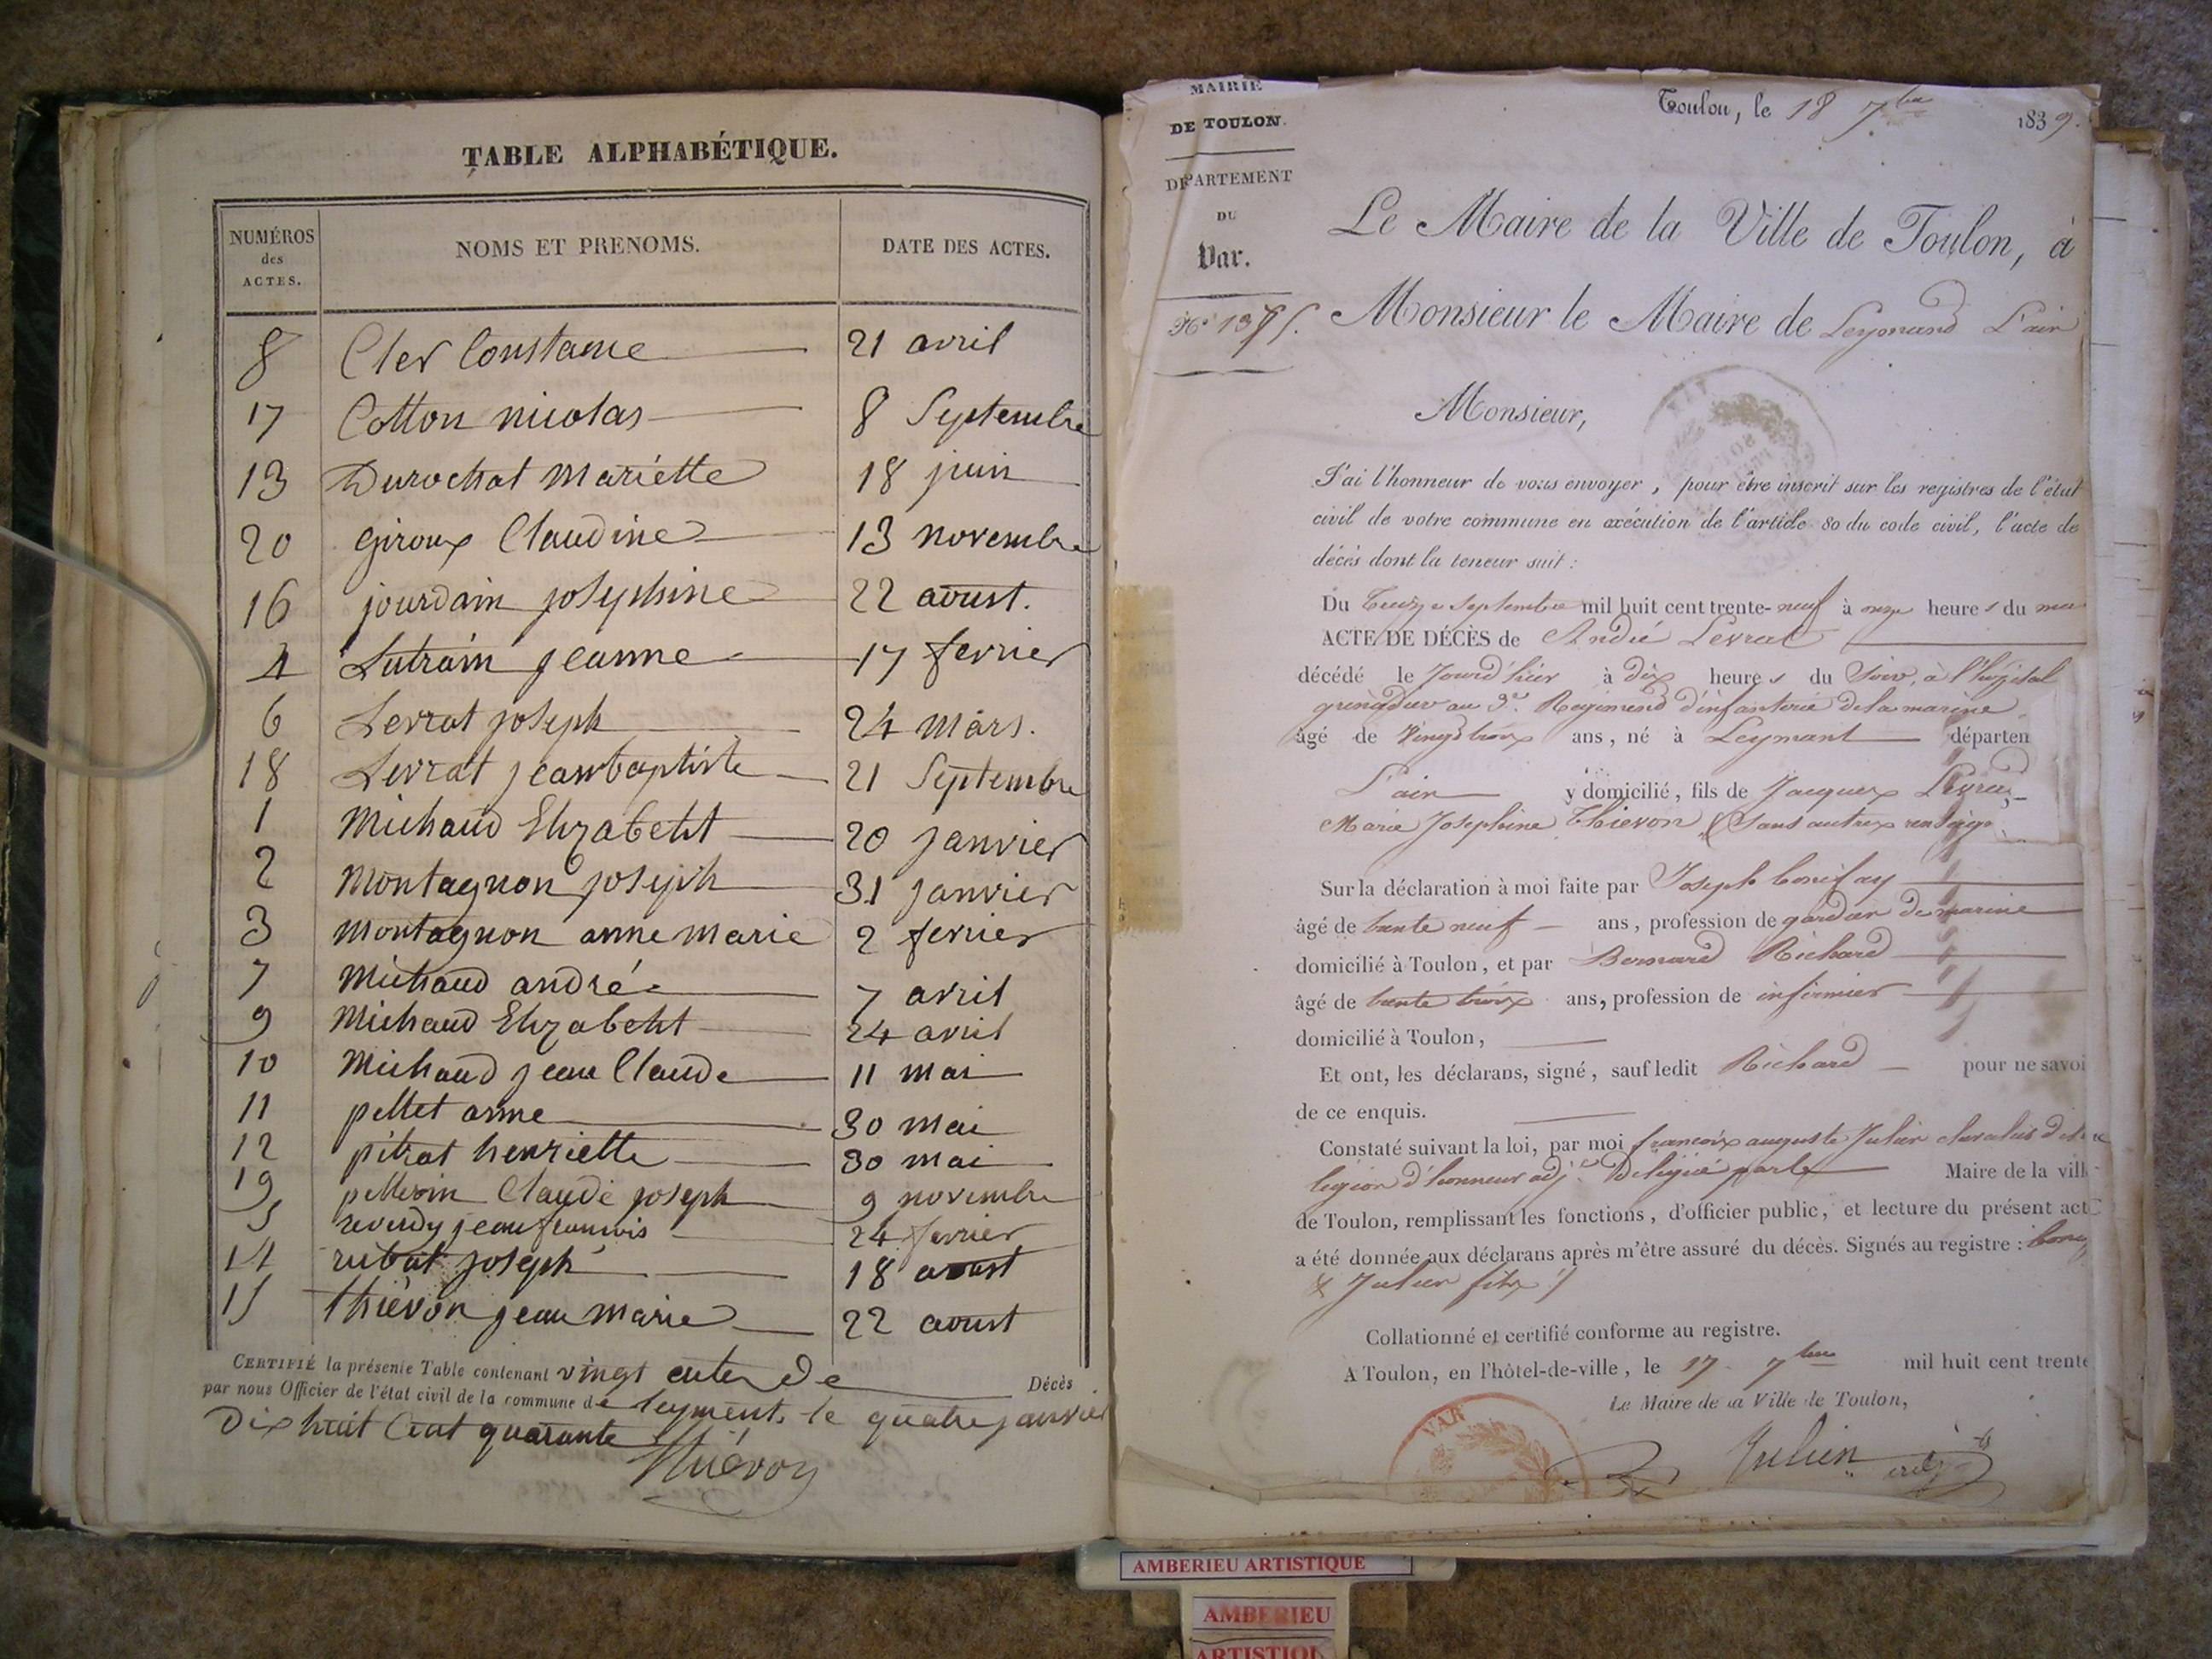 TABLE ALPHABÉTIQUE.
NUMÉROS des ACTES. NOMS ET PRENOMS. DATE DES ACTES.
8 Cler Constance 21 avril
17 Cotton nicolas 8 Septembre
13 Durochat Mariette 18 juin
20 giroux Claudine 13 novembre
16 jourdain josephine 22 aoust.
4 Lutrain jeanne 17 fevrier
6 Levrat joseph 24 mars.
18 Levrat jeanbaptiste 21 Septembre
1 Michaud Elizabeht 20 janvier
2 Montagnon joseph 31 janvier
3 Montagnon anne marie 2 fevrier
7 Michaud andré 7 avril
9 Michaud Elizabeht 24 avril
10 Michaud jean Claude 11 mai
11 pellet anne 30 mai
12 pitrat henriette 30 mai
19 pellerin Claude joseph 9 novembre
5 reverdy jean francois 24 fevrier
14 rubat joseph 18 aoust
15 thiévon jean marie 22 aoust
CERTIFIÉ la présente Table contenant vingt actes de Décès
par nous Officier de l'état civil de la commune de leyment, le quatre janvier
Dix huit Cent quarante
Thiévon
MAIRIE
DE TOULON.
DÉPARTEMENT
DU
Var.
Nº 1375.
Toulon, le 18 7bre 1839.
Le Maire de la Ville de Toulon, à
Monsieur le Maire de Leymand L'ain
Monsieur,
J'ai l'honneur de vous envoyer, pour être inscrit sur les registres de l'état
civil de votre commune en exécution de l'article 80 du code civil, l'acte de
décès dont la teneur suit :
Du Treize Septembre mil huit cent trente-neuf à onze heures du
ACTE DE DÉCÈS de André Levrat
décédé le Jourd'hier à dix heures du Soir, à l'hôpital
grenadier au 3e. Régiment d'infanterie de la marine
âgé de Vingt trois ans, né à Leymant départen
L'ain y domicilié, fils de Jacques Levrat
Marie Josephine Thievon (Sans autres renseig
Sur la déclaration à moi faite par Joseph bonifay
âgé de trente neuf ans, profession de gardien de marine
domicilié à Toulon, et par Bernard Richard
âgé de trente trois ans, profession de infirmier
domicilié à Toulon,
Et ont, les déclarans, signé, sauf ledit Richard pour ne savoi
de ce enquis.
Constaté suivant la loi, par moi françois auguste Julien chevalier de la
légion d'honneur adjt. Délégué par le Maire de la ville
de Toulon, remplissant les fonctions, d'officier public, et lecture du présent act
a été donnée aux déclarans après m'être assuré du décès. Signés au registre :
& Julien fils
Collationné et certifié conforme au registre.
A Toulon, en l'hôtel-de-ville, le 17 7bre mil huit cent trente
Le Maire de la Ville de Toulon,
VAR
Julien
AMBERIEU ARTISTIQUE
AMBERIEU
ARTISTIQU